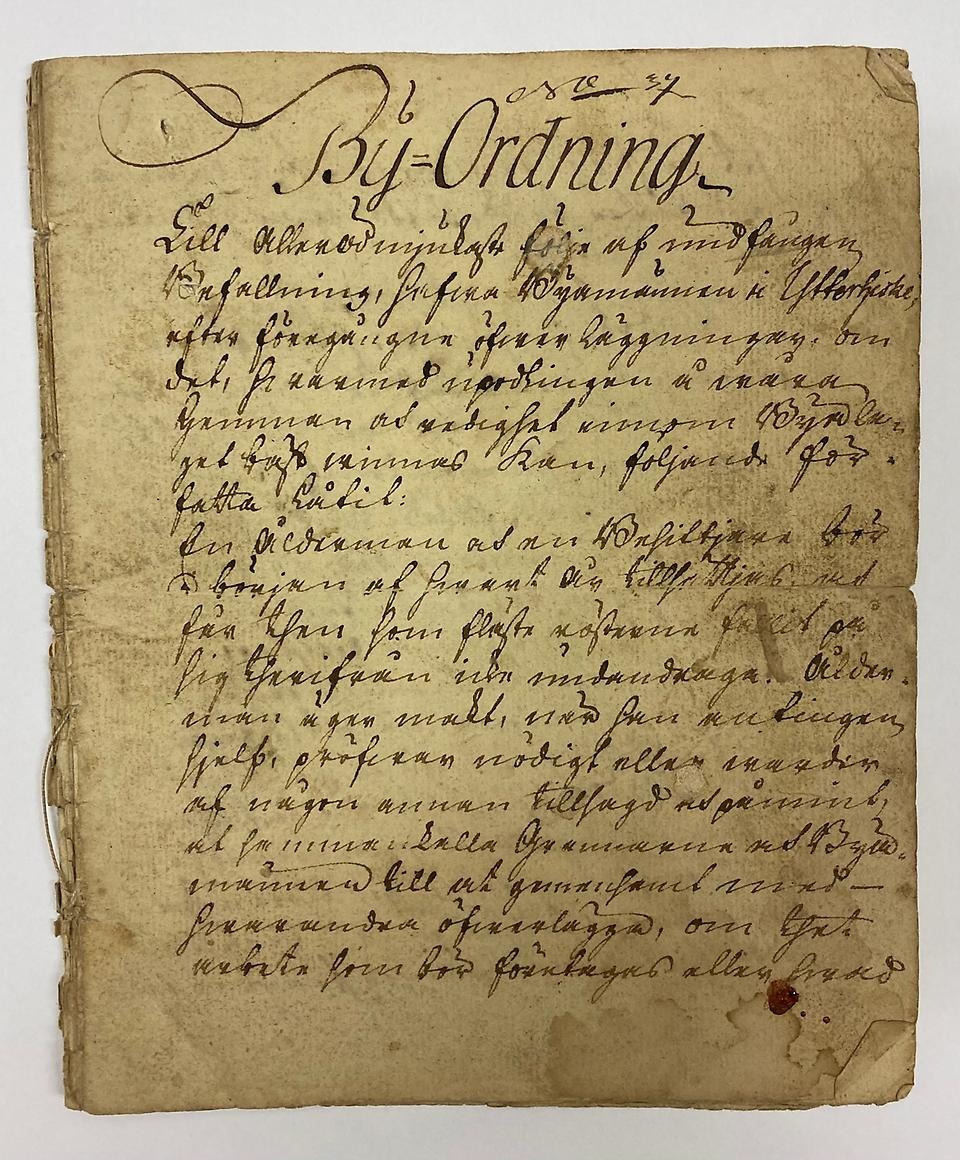 No 37
By=Ordning.
Till Allerödmjukaste följe af undfången
Befallning, hafwa Byamännen i Ytterhiske,
efter föregångne öfwerläggningar, om
det, hwarmed upodlingen å wåra
Hemman at redighet innom Byalä=
get bäst winnas kan, följande för=
fatta låtit:
En Ålderman at en Besiktjare bör
i början af hwart År tillsättjas, at
får then som fläste rösterne fallit på
sig therifrån icke undandraga. Ålder=
man äger makt, när han antingen
sjelf, pröfwar nödigt eller warder
af någon annan tillsagd at påmint,
at samman kalla Grannarne at Bya=
männen till at gemensamt med
hwarandra öfwerlägga, om thet
arbete som bör företagas eller hwad